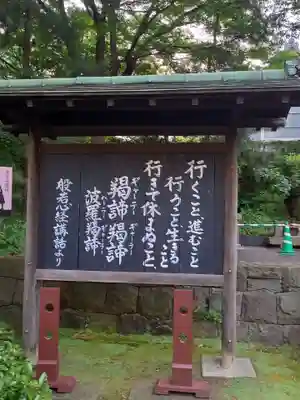 行くこと進むこと
行うこと生きること
行きて休まぬこと、
羯諦羯諦
ぎゃーてーぎゃーてー
波羅羯諦
はーらーぎゃーてー
般若心経講話より